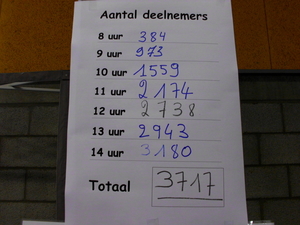 Aantal deelnemers
8 uur 384
9 uur 973
10 uur 1559
11 uur 2174
12 uur 2738
13 uur 2943
14 uur 3180
Totaal 3717